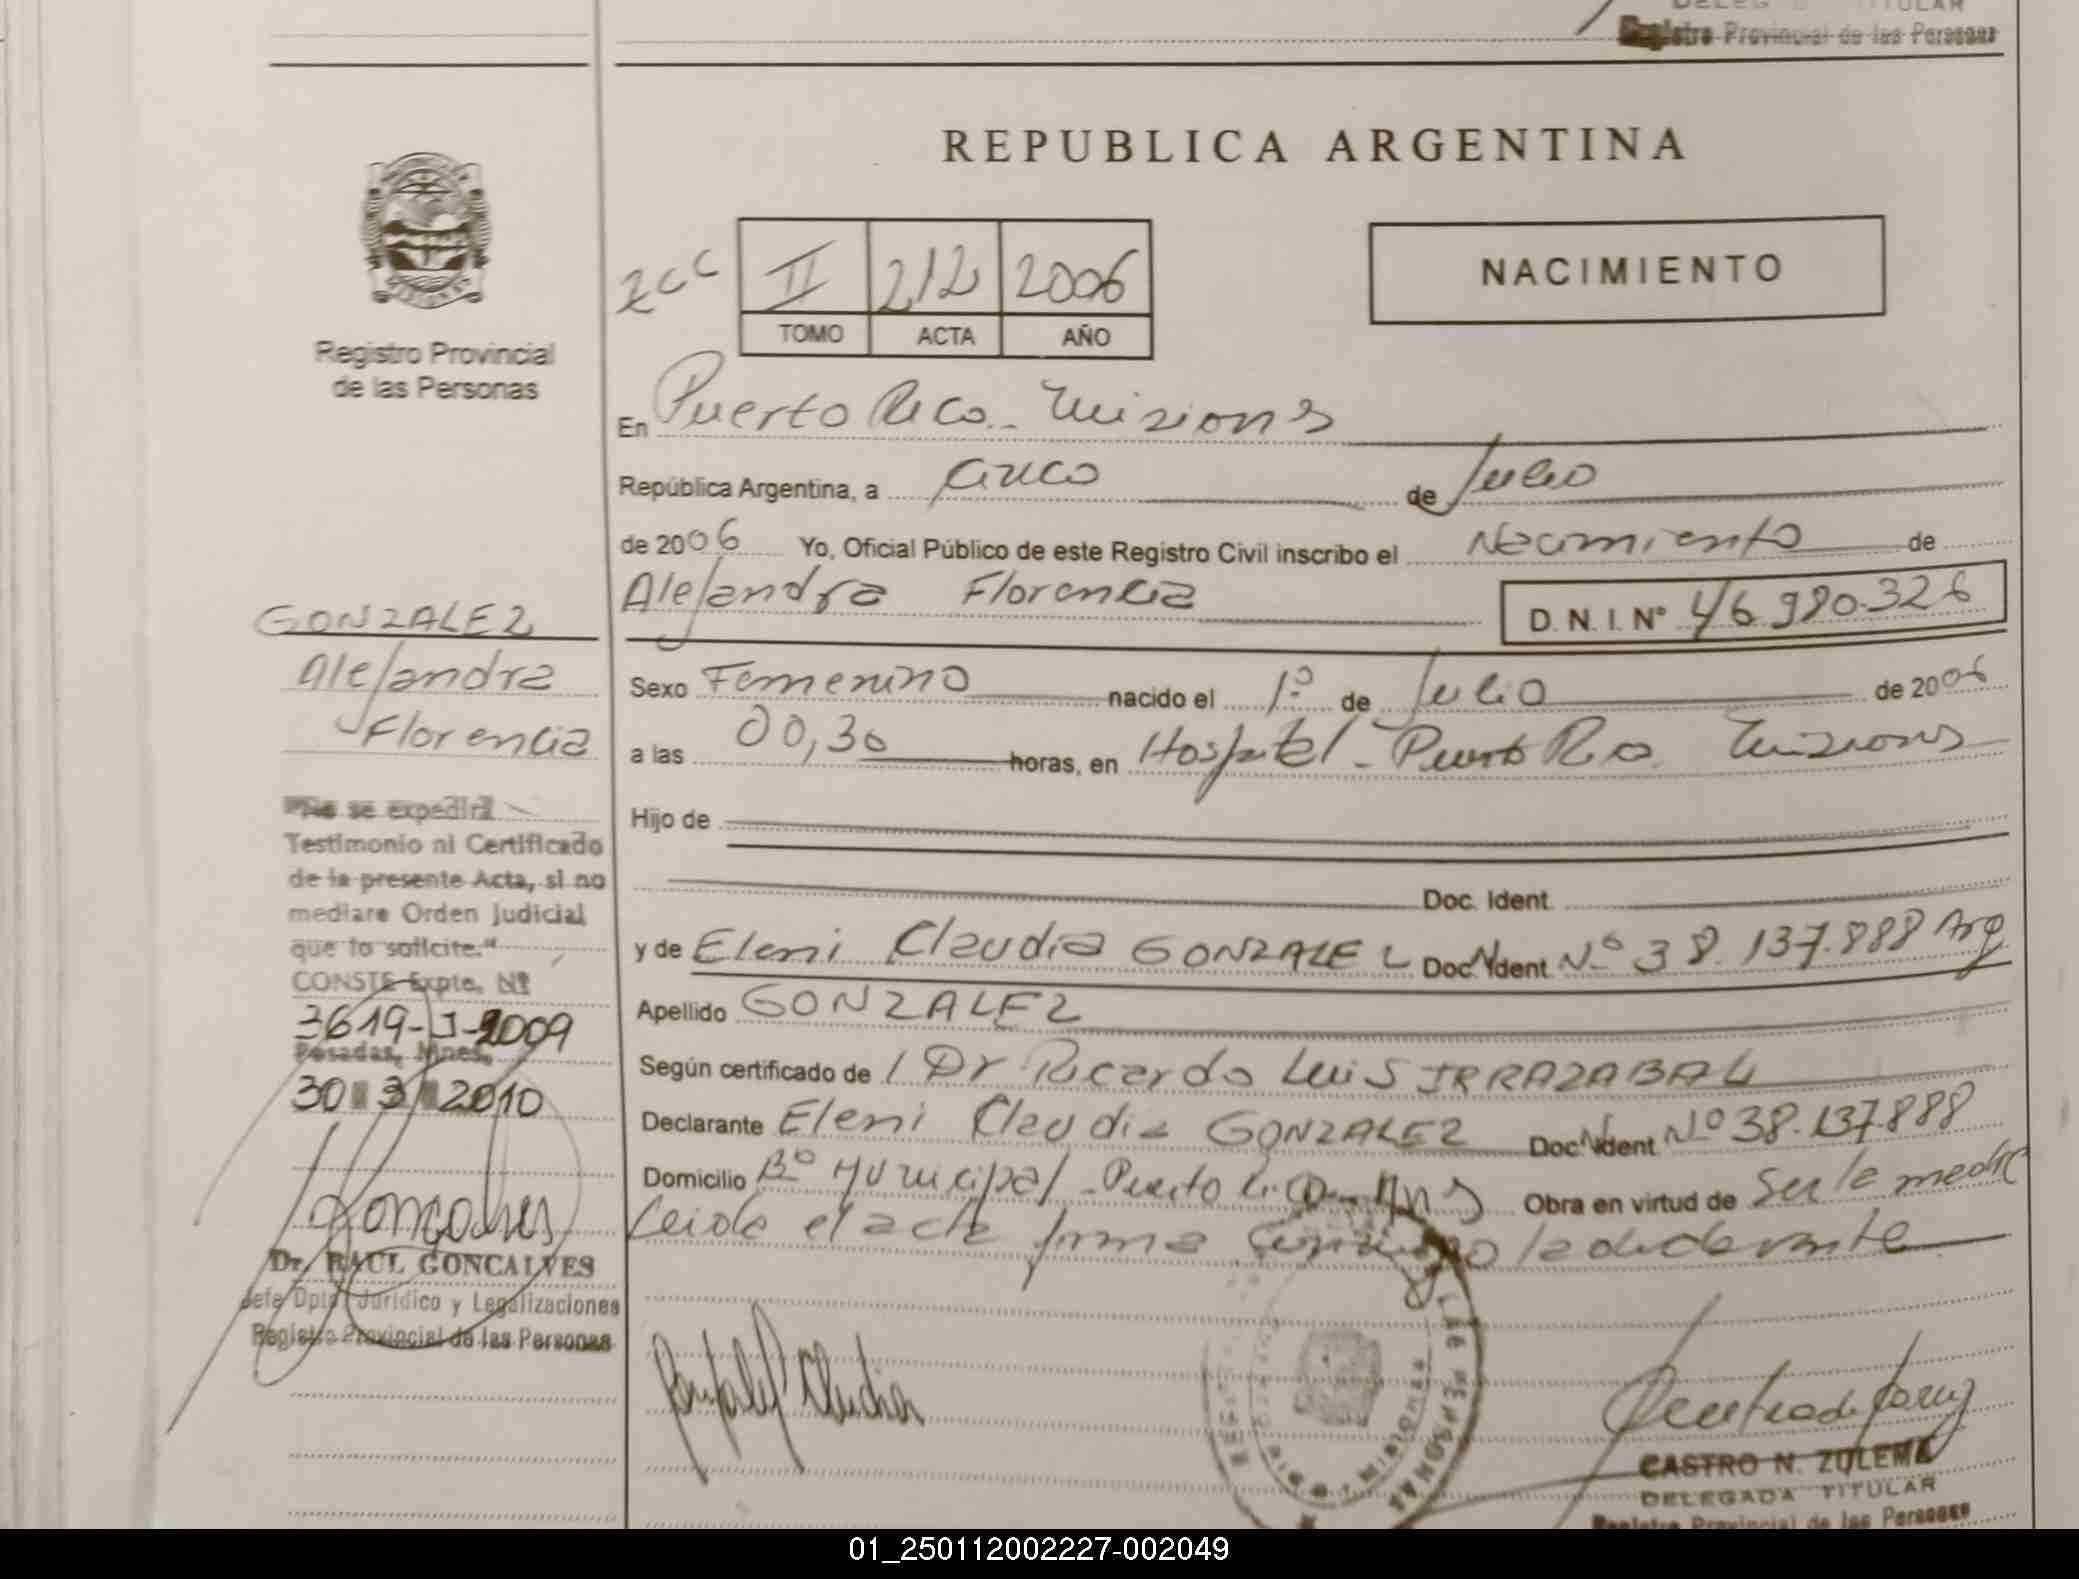 DELEG TITULAR
Registro Provincial de las Personas
REPUBLICA ARGENTINA
II 212 2006
TOMO ACTA AÑO
NACIMIENTO
Registro Provincial
de las Personas
En Puerto Rico - Misiones
República Argentina, a cinco de Julio
de 2006 Yo, Oficial Público de este Registro Civil inscribo el Nacimiento de
Alejandra Florencia D. N. I. N° 46.980.326
GONZALEZ
Alejandra
Florencia
Sexo Femenino nacido el 1º de Julio de 2006
a las 00,30 horas, en Hospital - Puerto Rico Misiones
Hijo de
Doc. Ident.
y de Eleni Claudia GONZALEZ Doc. Ident Nº 38.137.888 Arg
Apellido GONZALEZ
Según certificado de Dr Ricardo Luis IRRAZABAL
Declarante Eleni Claudia GONZALEZ Doc. Ident Nº 38.137.888
Domicilio Bº Municipal - Puerto Rico - Mns Obra en virtud de Ser la madre
Leida el acta firma la declarante
"No se expedirá
Testimonio ni Certificado
de la presente Acta, si no
mediare Orden Judicial
que lo solicite."
CONSTE Expte. Nº
3619-J-2009
Posadas, Mnes,
30 3 2010
Goncalves
Dr. RAUL GONCALVES
Jefe Dpto Jurídico y Legalizaciones
Registro Provincial de las Personas
Gonzalez Claudia
LAS PERSONAS
MISIONES
CASTRO N. ZULEMA
DELEGADA TITULAR
Registro Provincial de las Personas
01_250112002227-002049